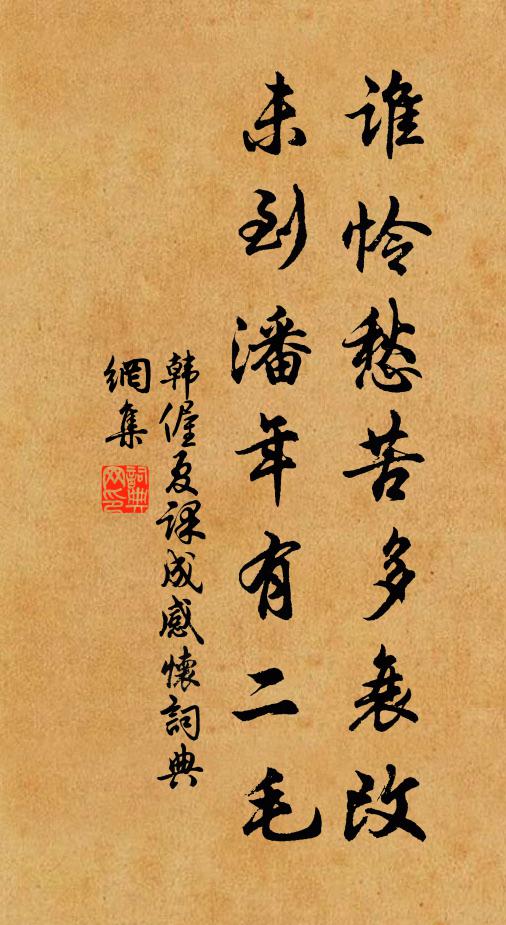 谁怜愁苦多衰改
未到潘年有二毛
韩偓夏课成感怀词典
網集
詞典
网印